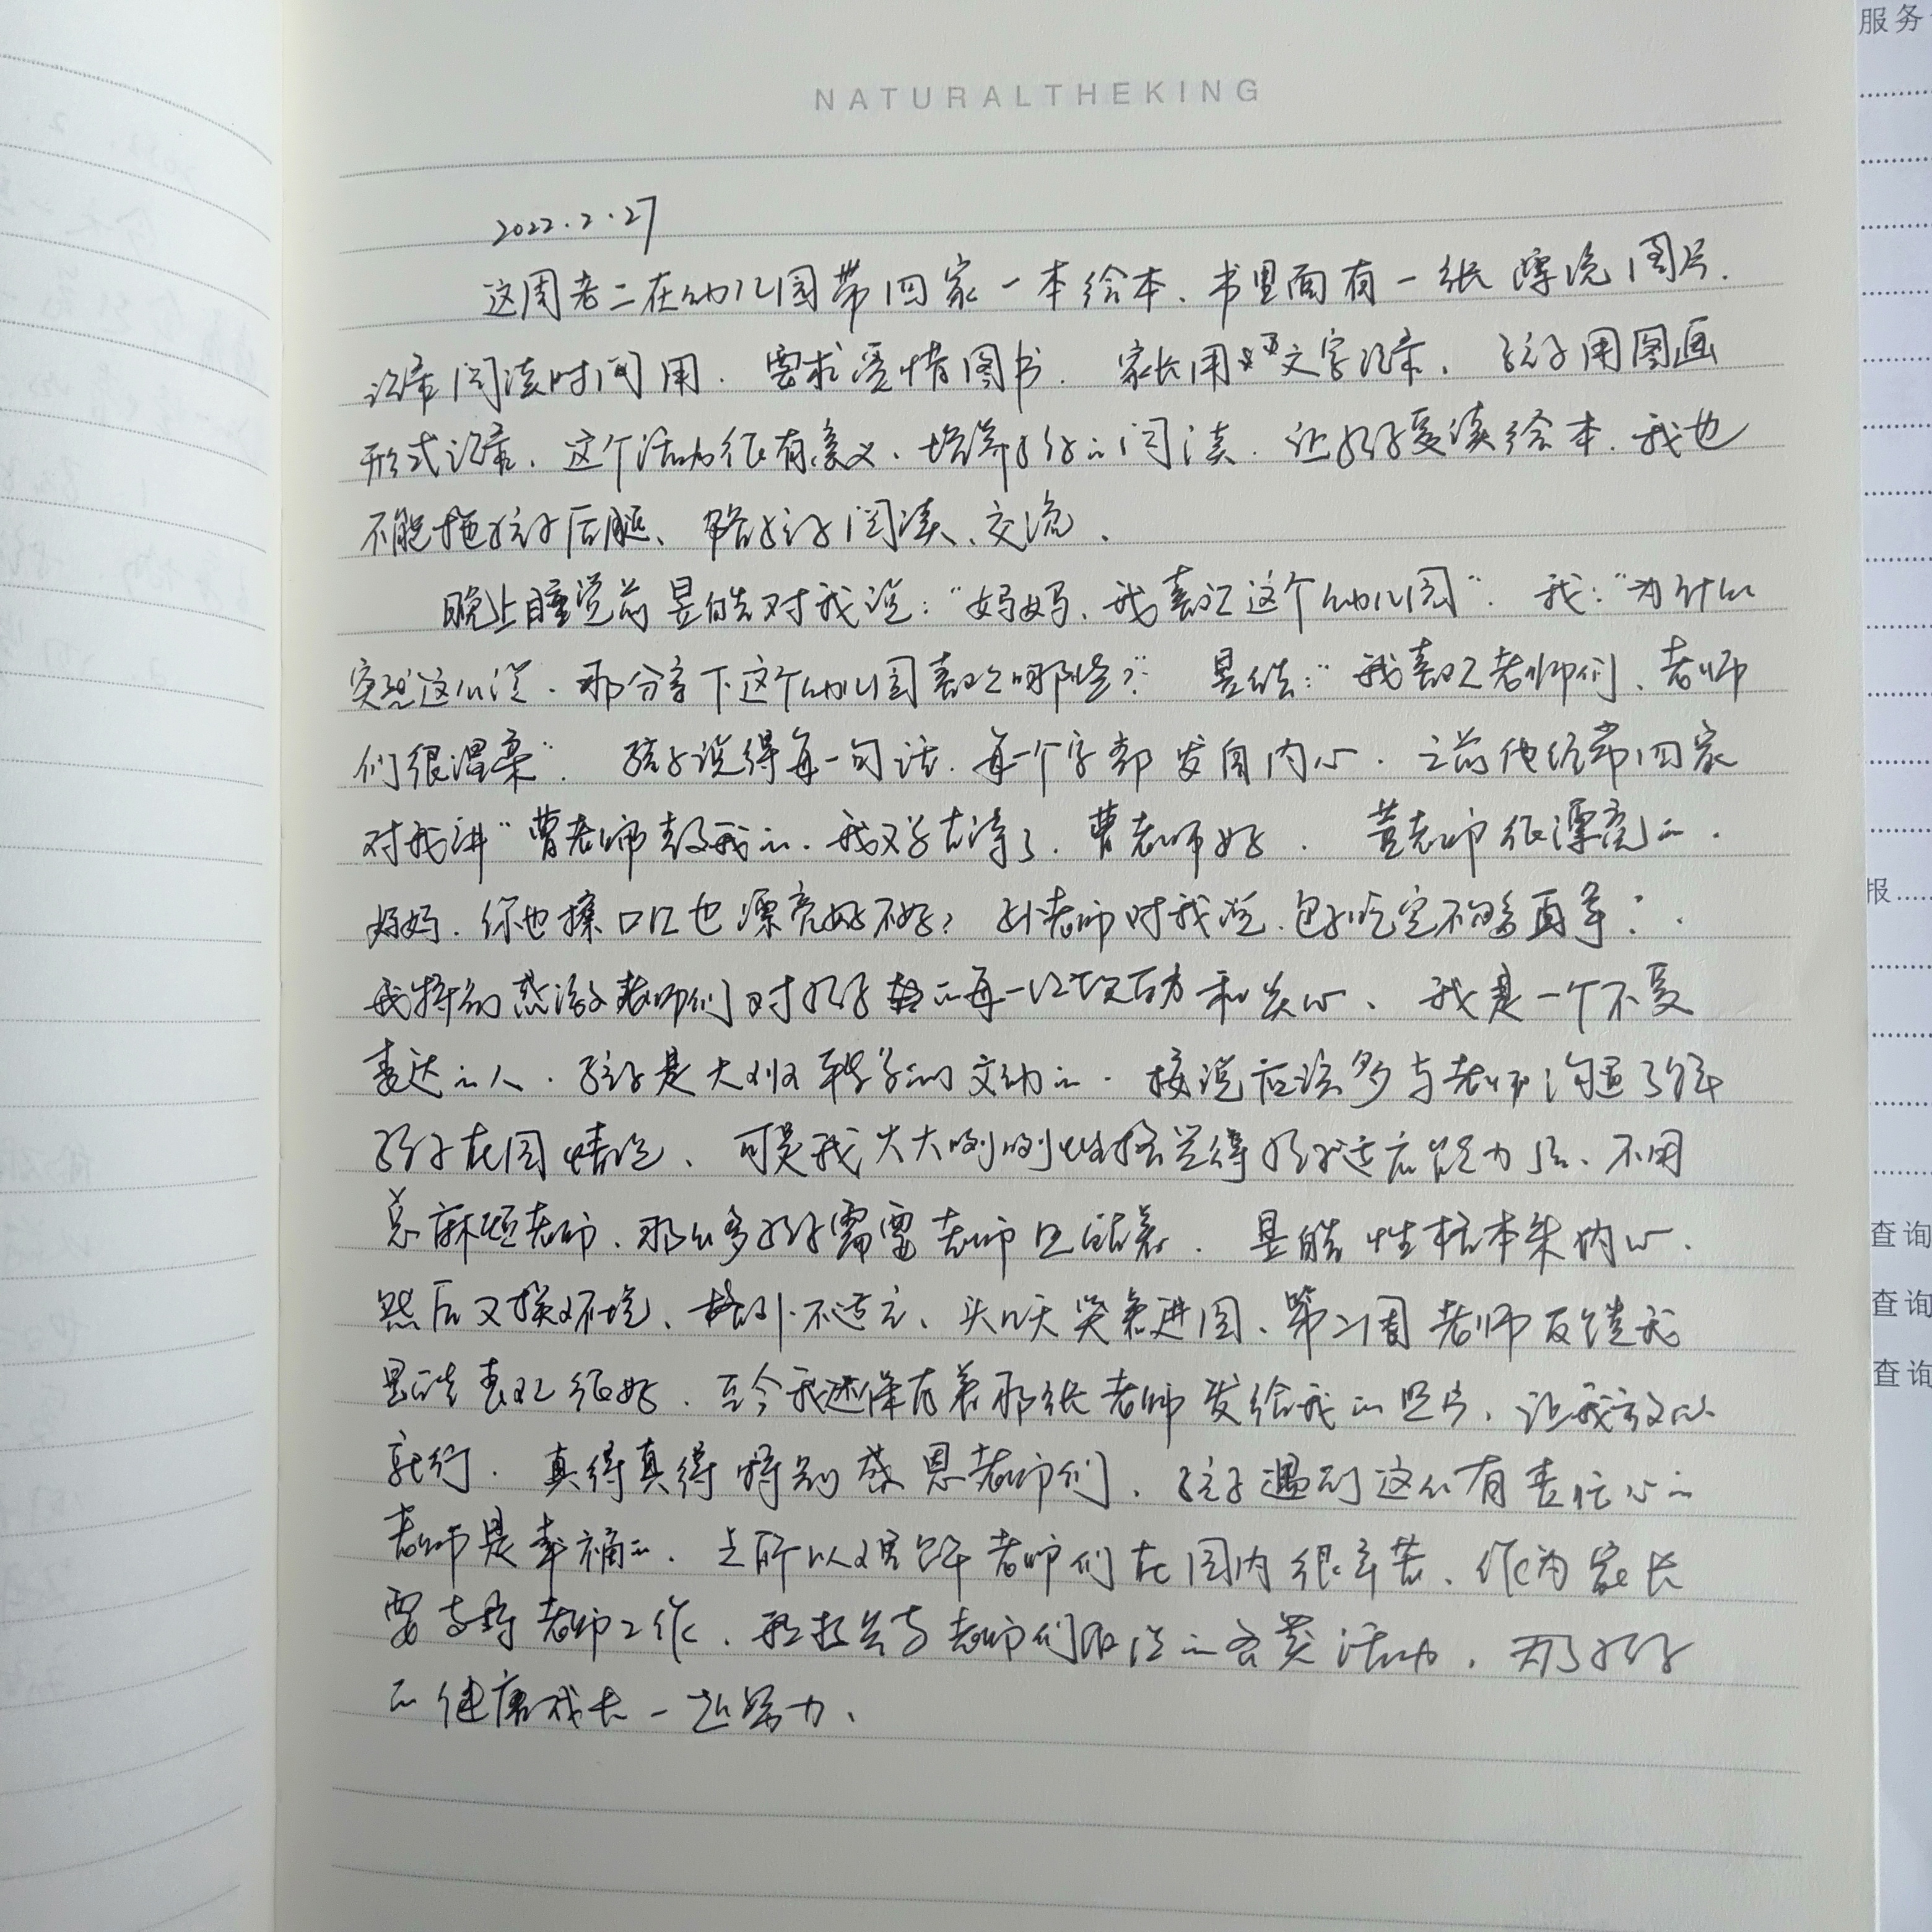 NATURALTHEKING
2022.2.27
这周老二在幼儿园带回家一本绘本、书里面有一张 漂流图片.
记录阅读时间用. 要求爱惜图书. 家长用文字记录. 孩子用图画
形式记录. 这个活动很有意义、培养孩子的阅读. 让孩子爱读绘本. 我也
不能拖孩子后腿、陪孩子阅读、交流.
晚上睡觉前昱皓对我说:"妈妈、我喜欢这个幼儿园". 我:"为什么
突然这么说. 那分享下这个幼儿园喜欢哪些?" 昱皓:"我喜欢老师们、老师
们很温柔". 孩子说得每一句话. 每一个字都发自内心. 之前他经常回家
对我讲"曹老师教我的. 我又学古诗了. 曹老师好. 黄老师很漂亮的.
妈妈. 你也擦口红也漂亮好不好? 老师对我说. 包子吃完不够再拿".
我特别感激老师们对孩子的每一次付出和关心、我是一个不爱
表达的人. 孩子是大班转学的幼儿. 按说应该多与老师沟通了解
孩子在园情况、可是我大大咧咧性格觉得孩子适应能力强、不用
总麻烦老师、那么多孩子需要老师照顾着. 昱皓性格本来内心.
然后又换环境、格外不适应、头几天哭着进园、第二周老师反馈我
昱皓表现很好. 至今我还保存着那张老师发给我的照片、让我放心
就行. 真得真得特别感恩老师们、孩子遇到这么有责任心的
老师是幸福的. 所以理解老师们在园内很辛苦、作为家长
要支持老师工作、积极参与老师们的各类活动、为了孩子
的健康成长一起努力、
服务
报
查询
查询
查询